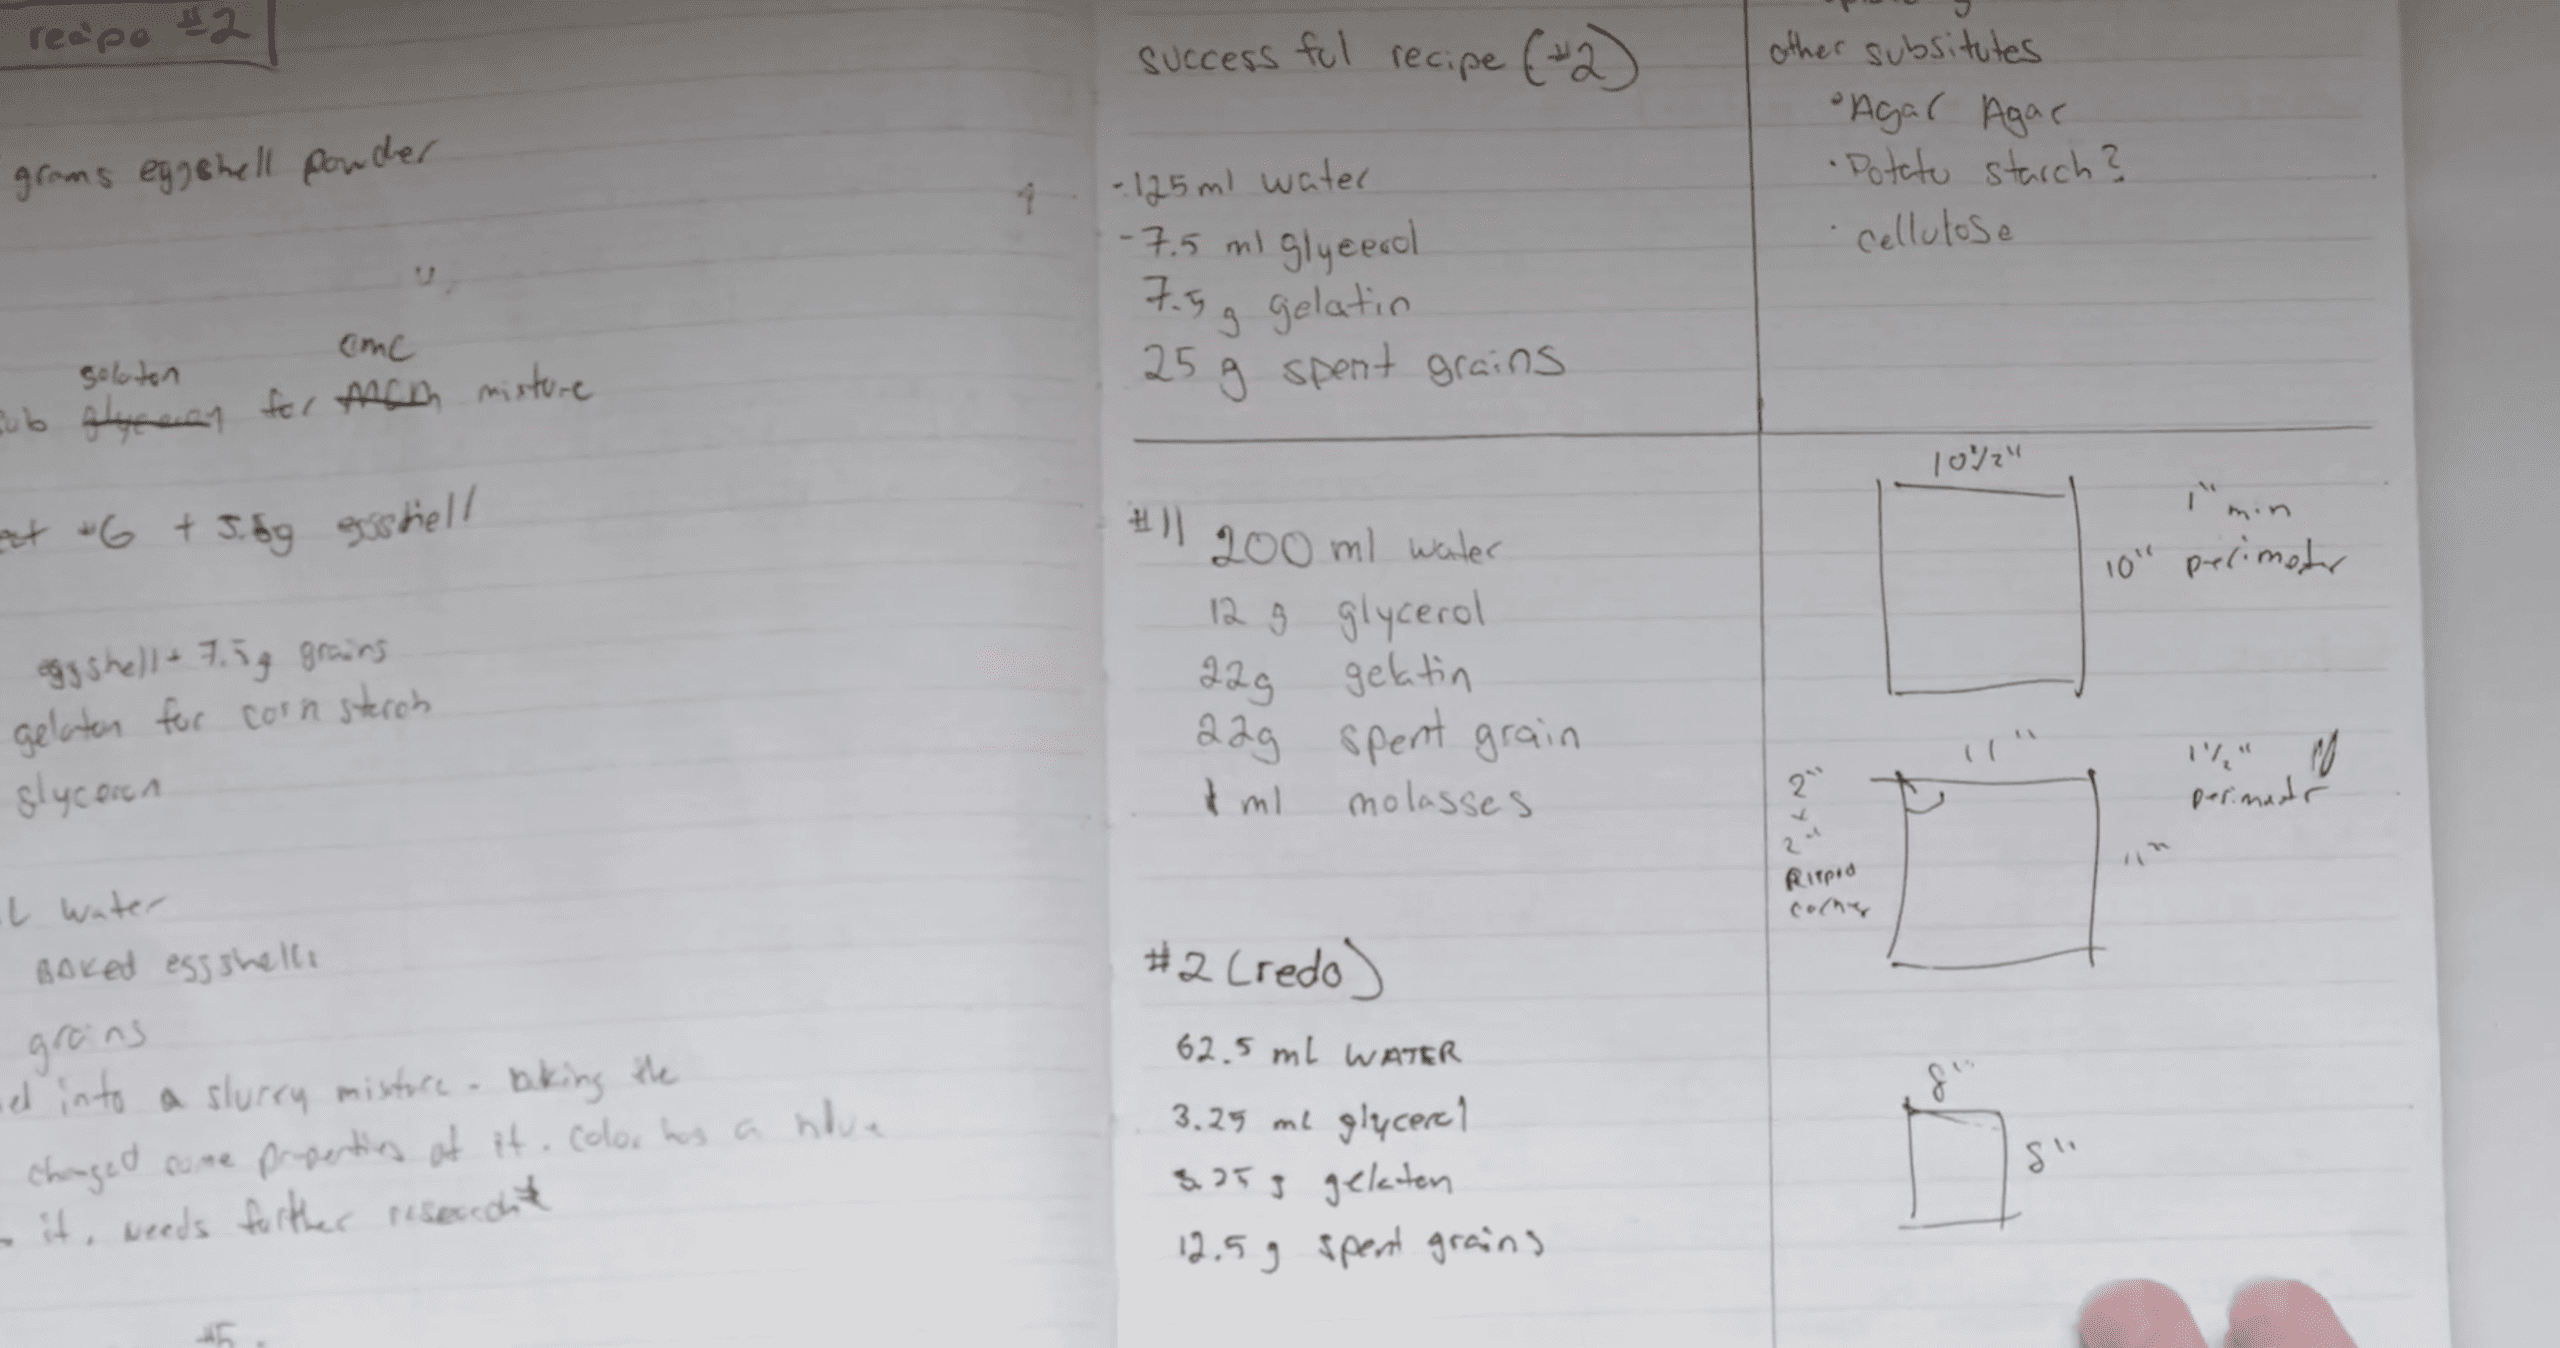 recipe #2
grams eggshell powder
"
gelaton cmc
sub glyceren for MCM mixture
#6 + 5.5g eggshell
eggshell + 7.5g grains
gelaton for corn starch
glyceren
L water
BAKED eggshells
grains
into a slurry mixture. baking the
changed some properties of it. Color has a
it. needs further research
#5.
successful recipe (#2)
- 125 ml water
- 7.5 ml glycerol
7.5 g gelatin
25 g spent grains
other subsitutes
• Agar Agar
• Potato starch?
• cellulose
#11 200 ml water
12 g glycerol
22g gelatin
22g spent grain
1 ml molasses
#2 (redo)
62.5 mL WATER
3.25 mL glycerol
3.25 g gelaton
12.5 g spent grains
10 1/2"
1" min
10" perimeter
11"
1 1/2"
perimeter
2"
x
2"
Ripped
corner
11"
8"
8"